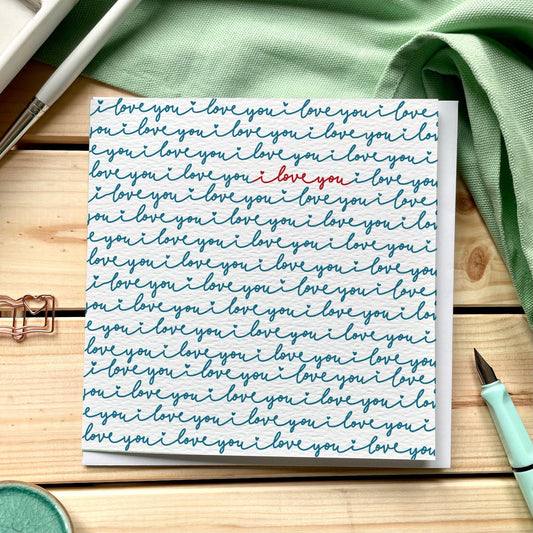 i love you i love you i love you i love
you i love you i love you i love you
love you i love you i love you i love
love you i love you i love you i love
you i love you i love you i love you
love you i love you i love you i love
love you i love you i love you i love
you i love you i love you i love you
i love you i love you i love you i love
you i love you i love you i love you
love you i love you i love you i love
love you i love you i love you i love
love you i love you i love you i love
you i love you i love you i love you
love you i love you i love you i love
love you i love you i love you i love you